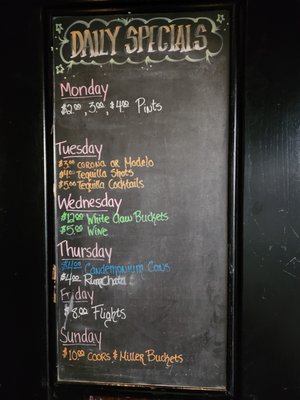 DAILY SPECIALS
Monday
$2.00, 3.00, $4.00 Pints
Tuesday
$3.00 corona or Modelo
$4.00 Tequilla Shots
$5.00 Tequilla Cocktails
Wednesday
$12.00 White Claw Buckets
$5.00 Wine
Thursday
$4.00 Candemonium Cans
$4.00 RumChata
Friday
$8.00 Flights
Sunday
$10.00 Coors & Miller Buckets